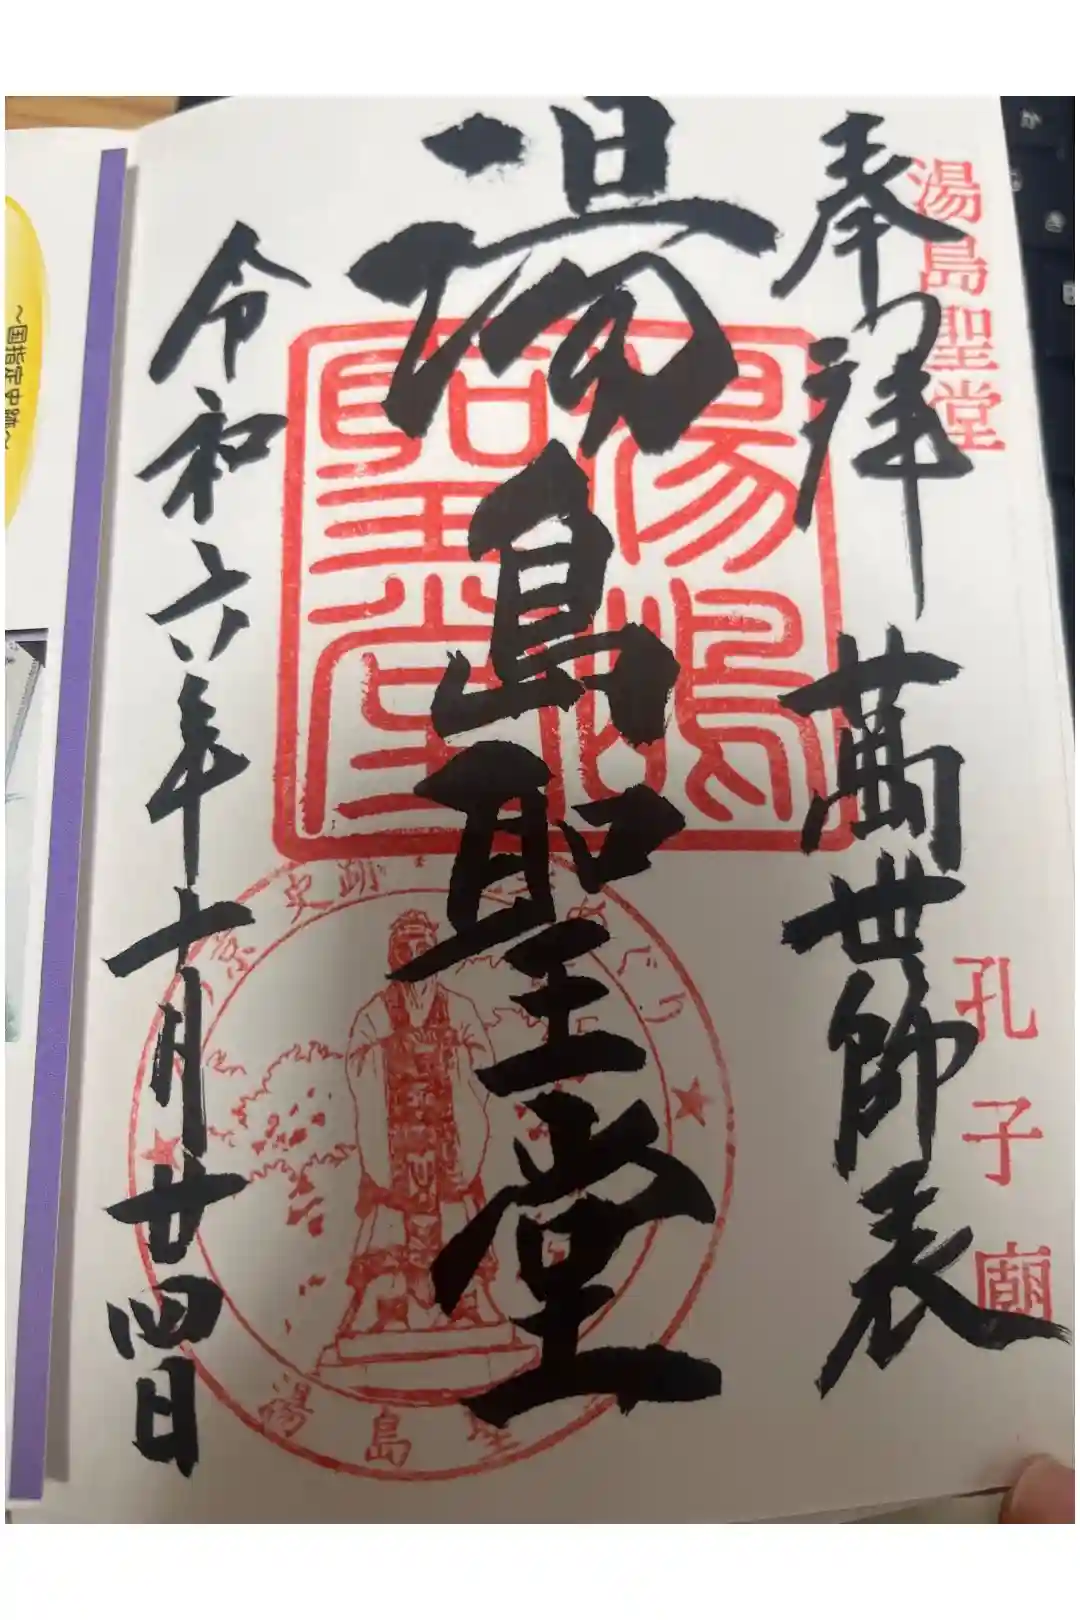 湯島聖堂
奉拝 萬世師表
孔子廟
湯島聖堂
湯島聖堂
令和六年十月廿四日
史跡
湯島聖
~国指定史跡~